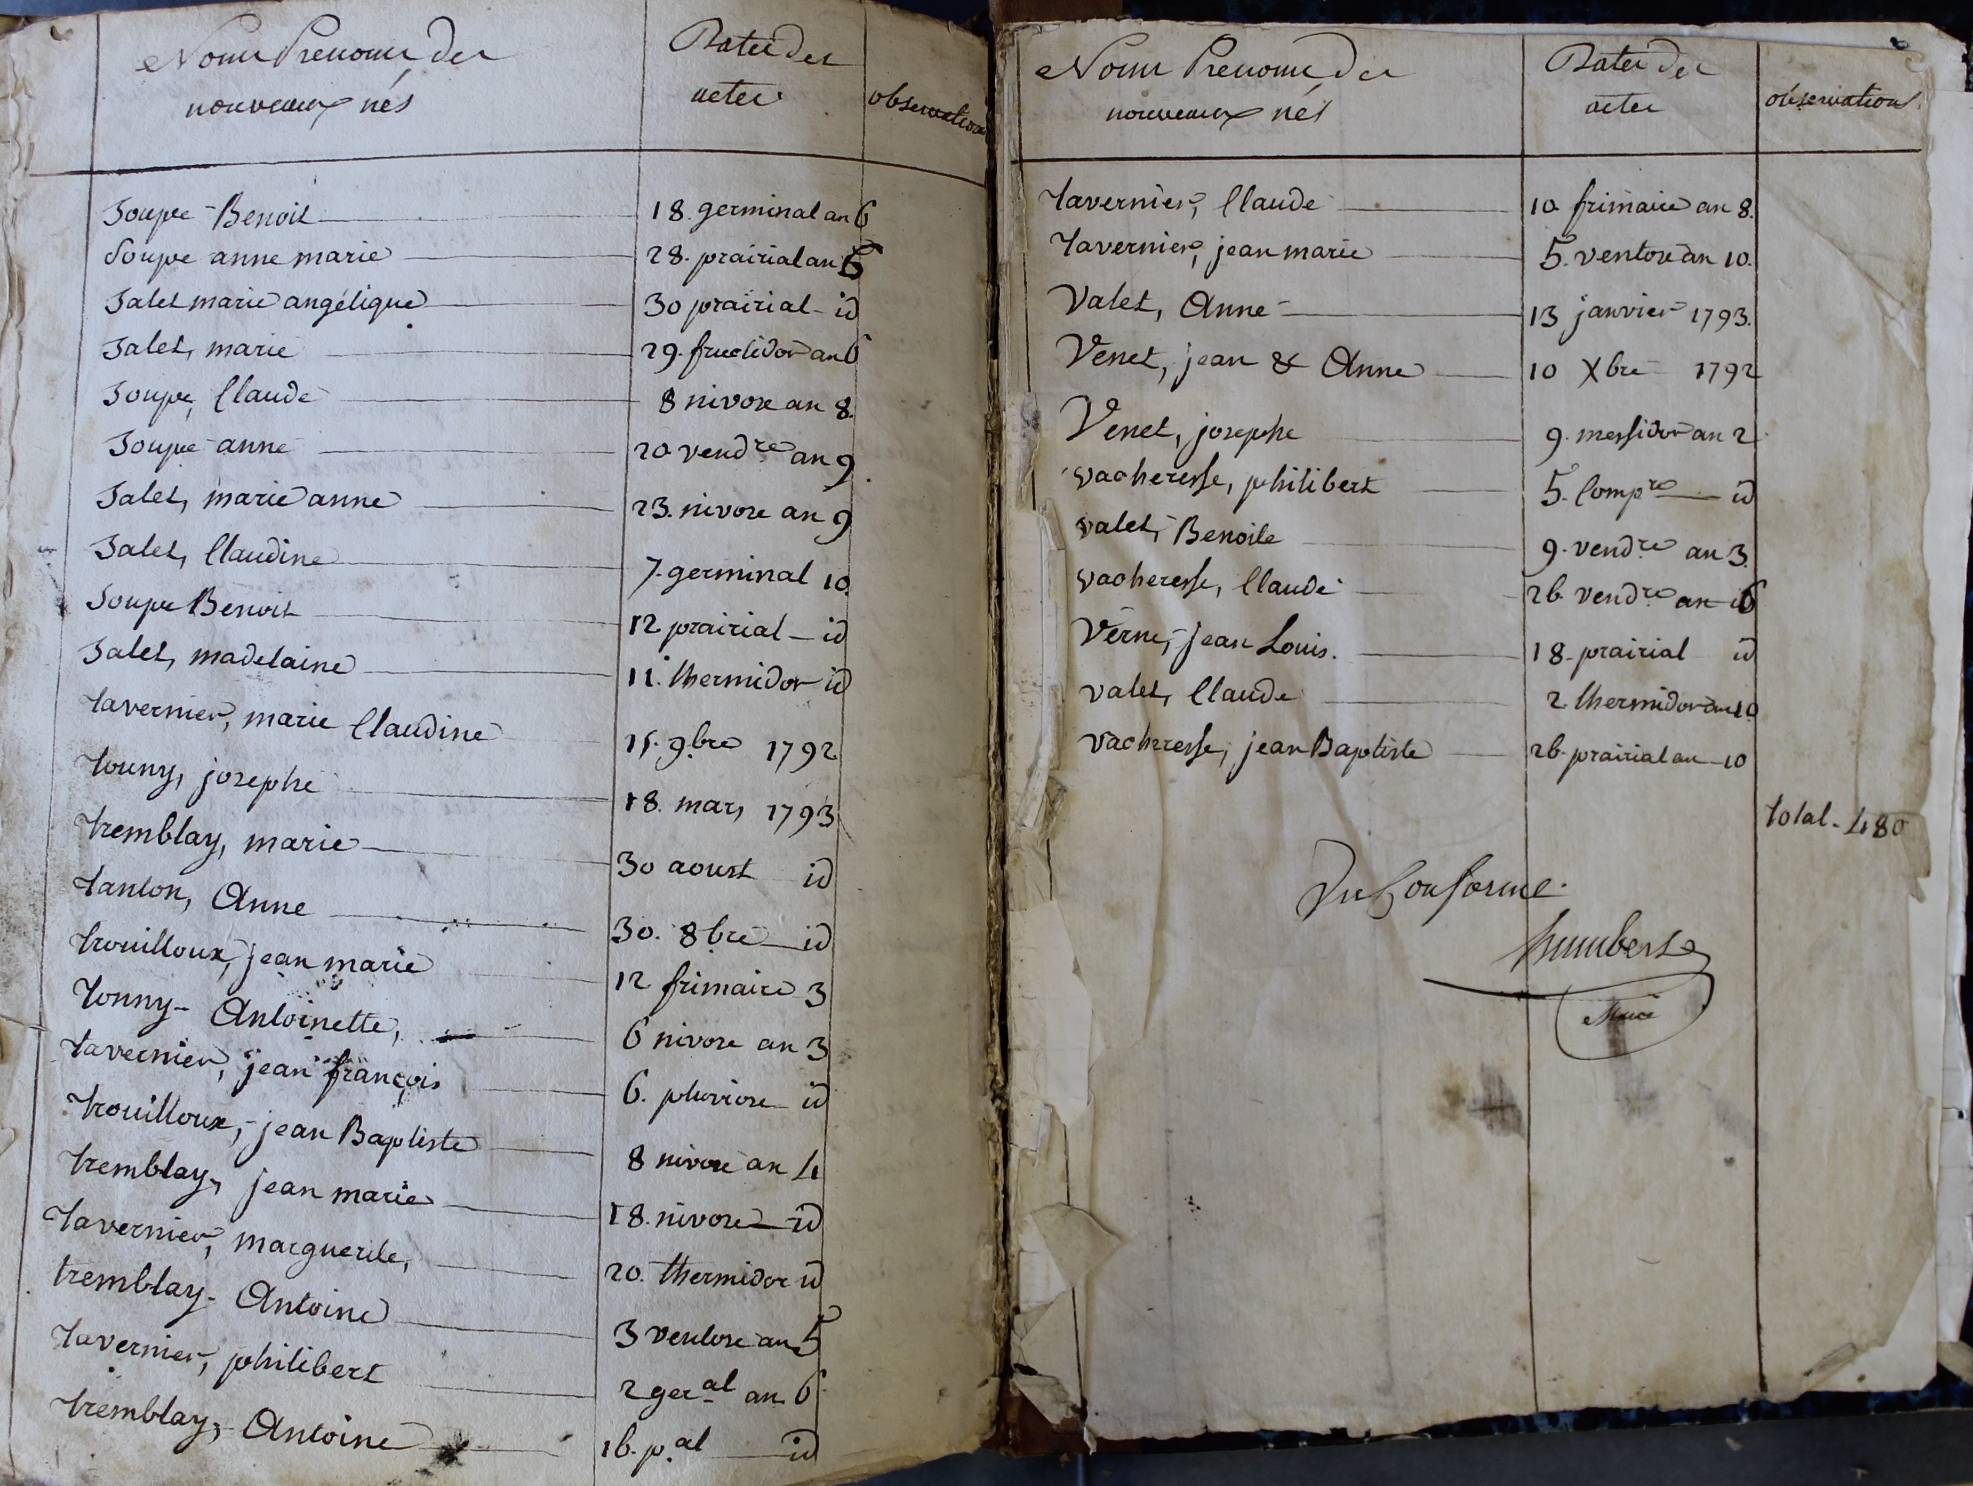 Noms Prenoms des
nouveaux nés
Dates des
actes
observations
Soupe Benoit 18. germinal an 6
Soupe anne marie 28. prairial an 6
Salet marie angélique 30 prairial id
Salet, marie 29. fructidor an 6
Soupe, Claude 8 nivose an 8.
Soupe anne 20 vendre an 9
Salet, marie anne 23. nivose an 9
Salet, Claudine 7. germinal 10.
Soupe Benoit 12 prairial id
Salet, madelaine 11. thermidor id
tavernier, marie Claudine 15. 9.bre 1792
touny, josephe 18. mars 1793
tremblay, marie 30 aoust id
tanton, Anne 30. 8bre id
trouilloux, jean marie 12 frimaire 3
tonny Antoinette, 6 nivose an 3
tavernier, jean françois 6. pluviose id
trouilloux, jean Baptiste 8 nivose an 4
tremblay, jean marie 18. nivose id
tavernier, marguerite, 20. thermidor id
tremblay Antoine 3 ventose an 5
tavernier, philibert 2 ger.al an 6
tremblay, Antoine 16. p.al id
Noms Prenoms des
nouveaux nés
Dates des
actes
observations
tavernier, Claude 10 frimaire an 8.
tavernier, jean marie 5. ventose an 10.
Valet, Anne 13 janvier 1793.
Venet, jean & Anne 10 Xbre 1792
Venet, josephe 9. messidor an 2
vacheresse, philibert 5. Compre id
valet, Benoite 9. vendre an 3.
vacheresse, Claude 26. vendre an 6
Verne, jean Louis. 18. prairial id
valet, Claude 2. thermidor an 10
vacheresse, jean Baptiste 26. prairial an 10
total - 480
Conforme.
humbert
Maire